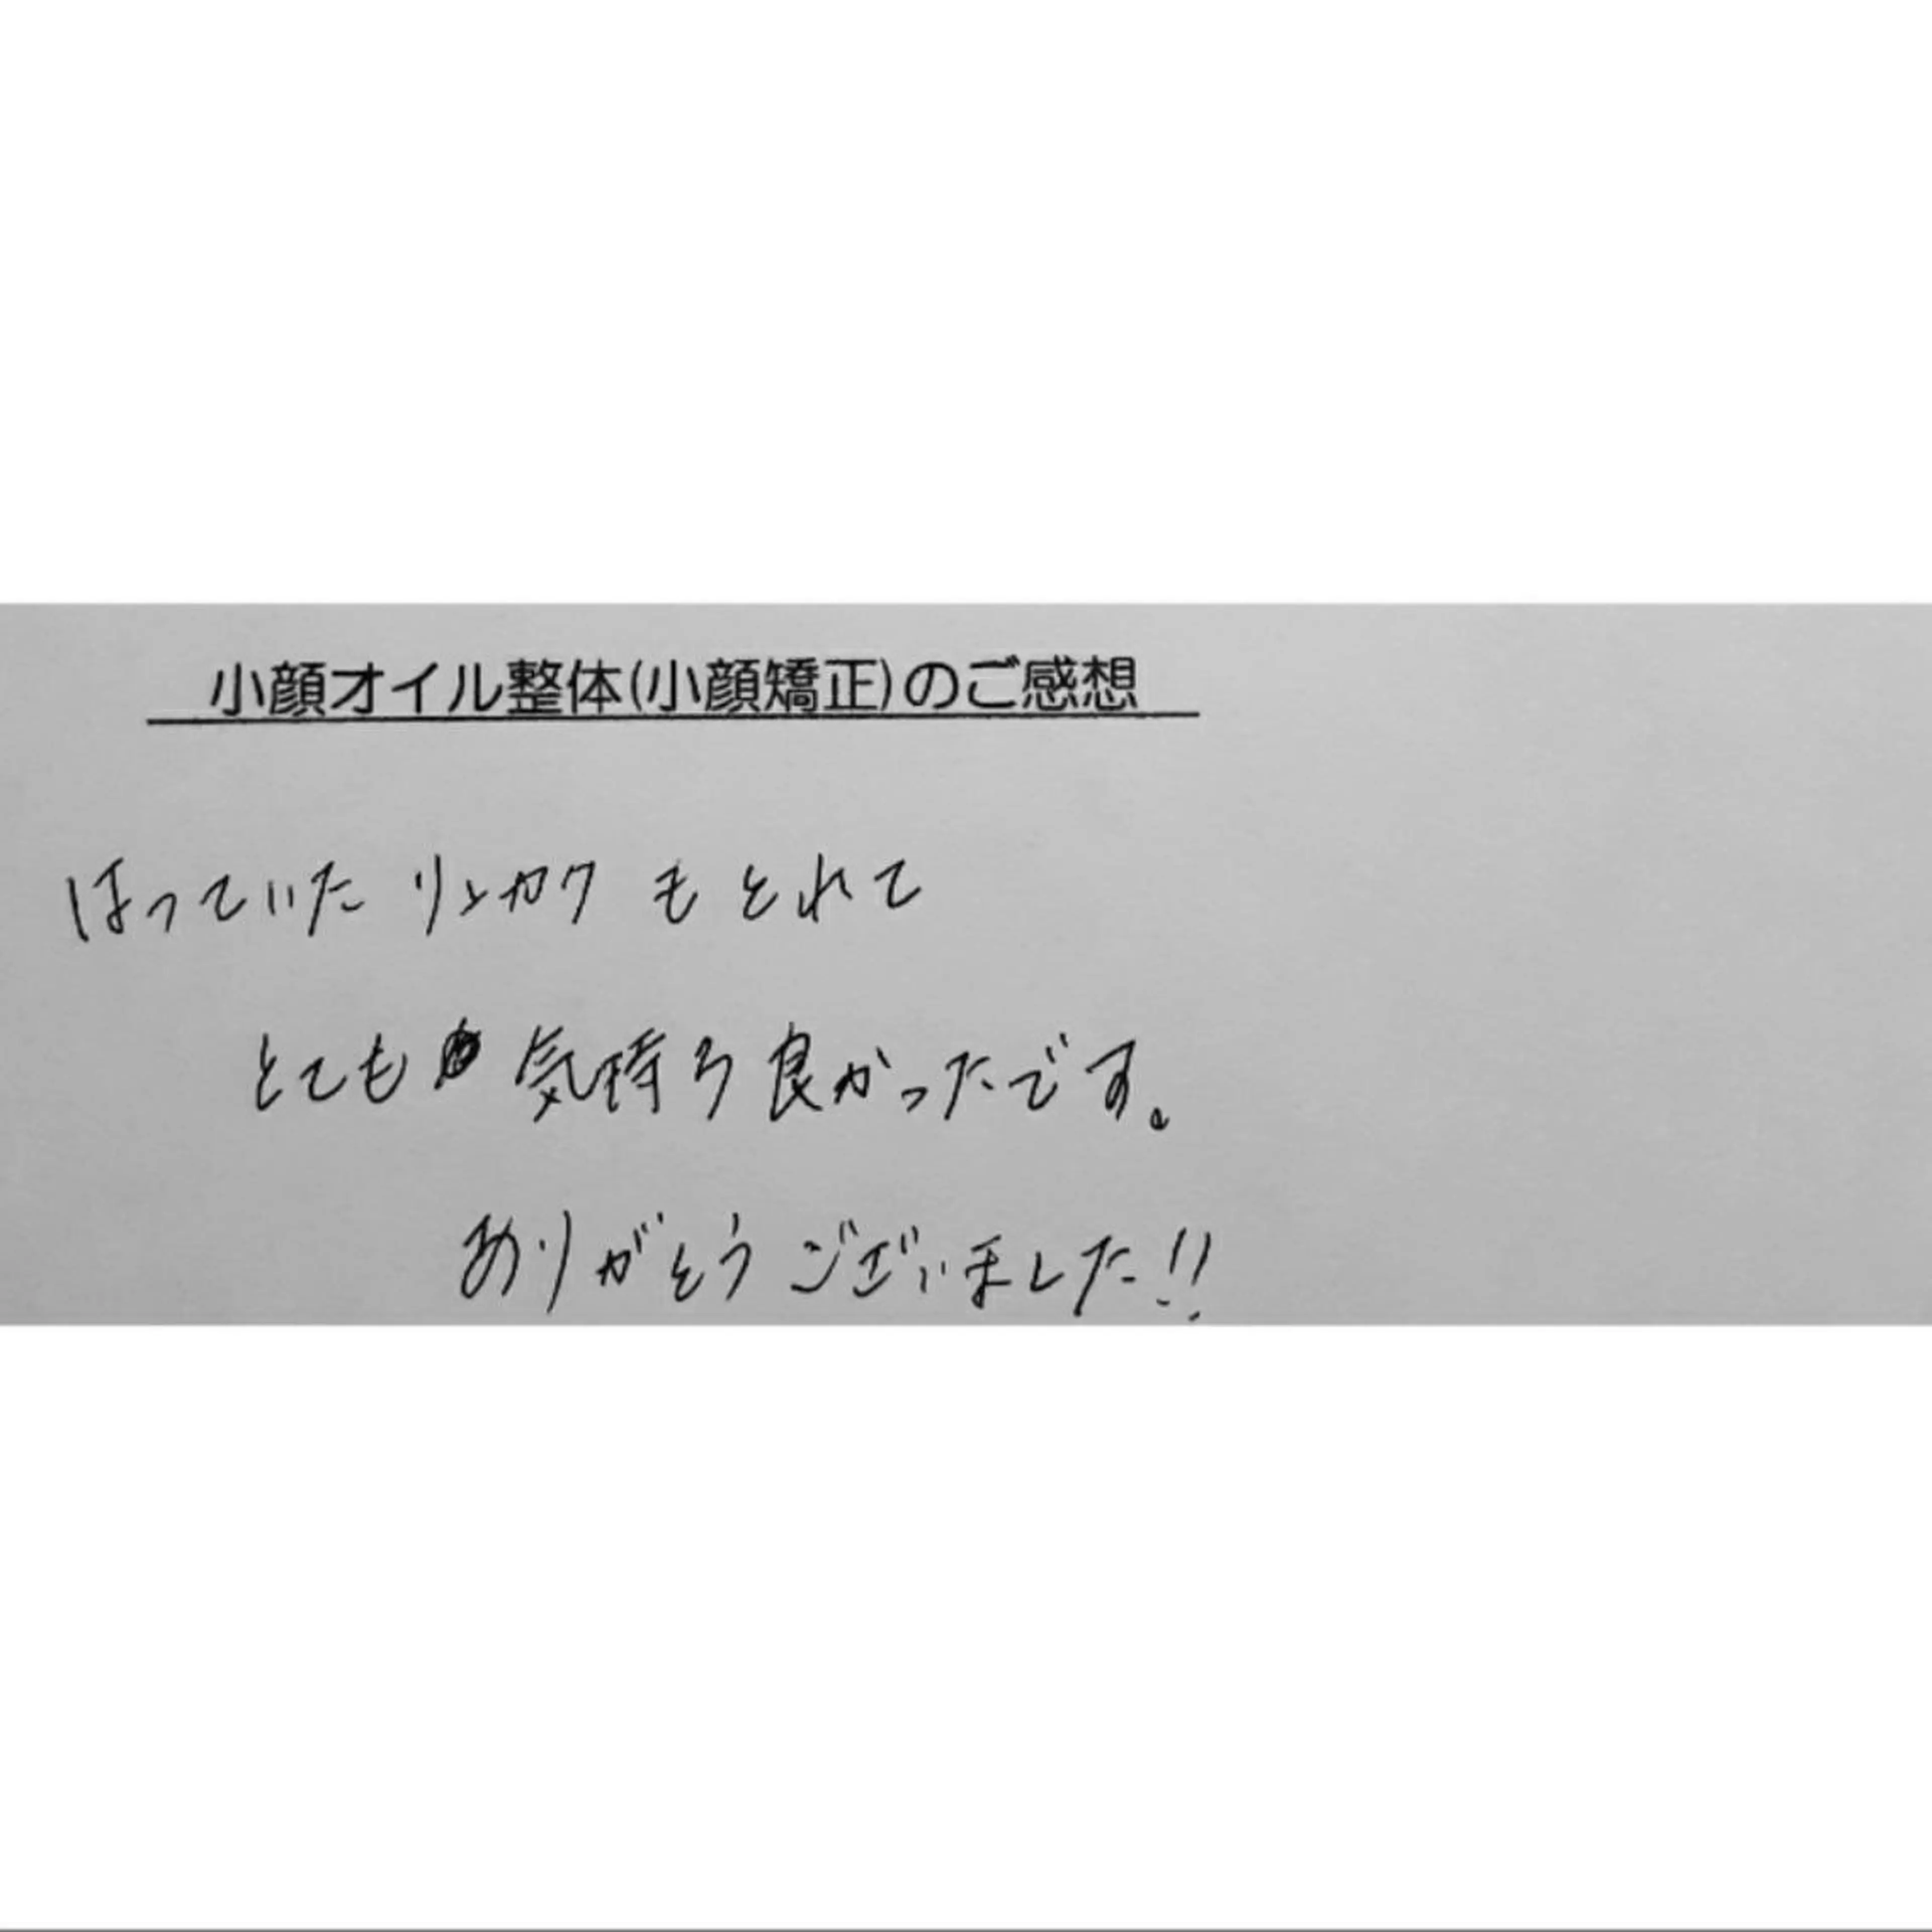 小顔オイル整体(小顔矯正)のご感想
はっていた リンカク も とれて
とても 気持ち 良かったです。
ありがとう ございました!!